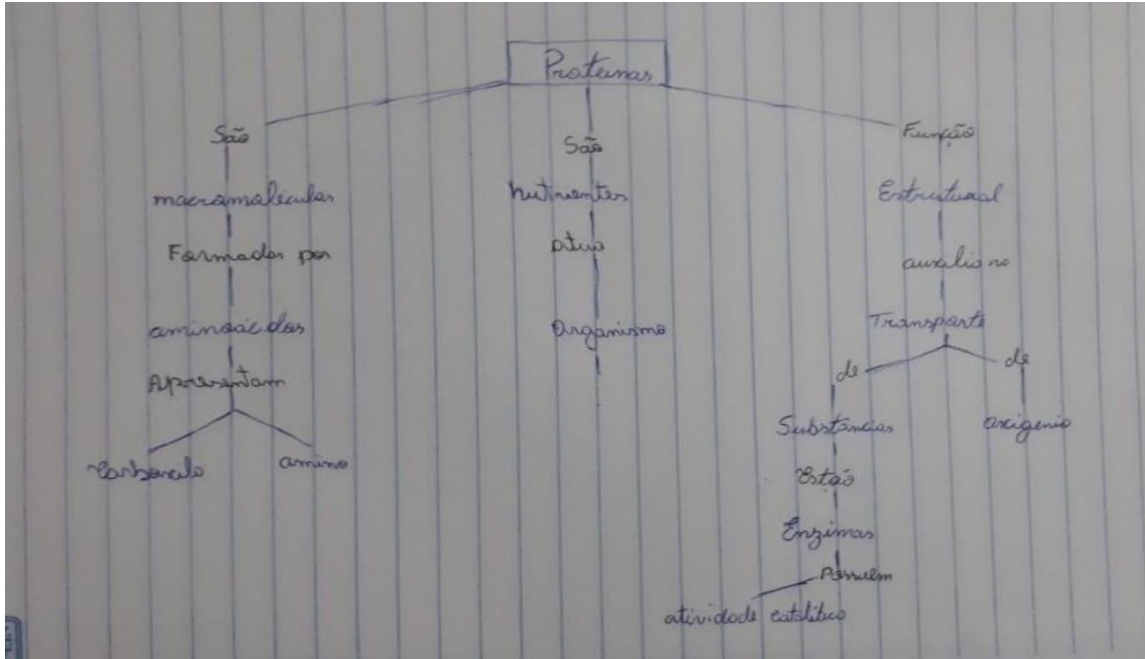 Proteinas
São
macromoléculas
Formadas por
aminoácidos
Apresentam
Carboxila
amino
São
nutrientes
atua
Organismo
Função
Estrutural
auxilio no
Transporte
de
de
Substâncias
oxigenio
Estão
Enzimas
Possuem
atividade catalítica